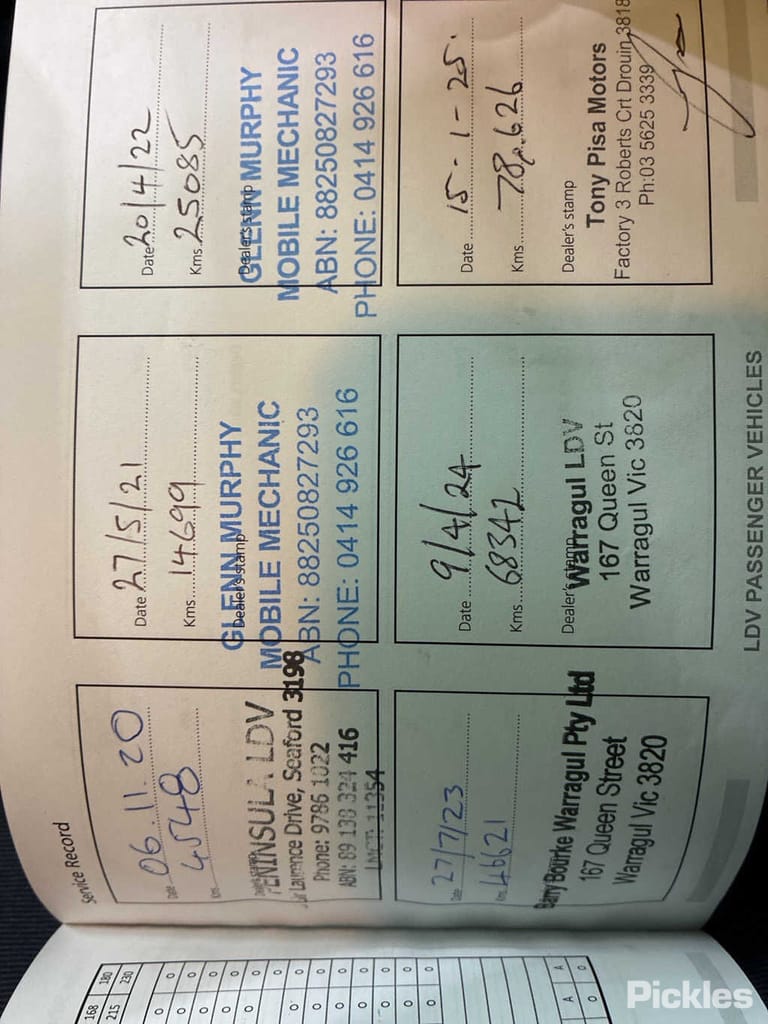 Service Record
Date 06.11.20
Kms 4548
PENINSULA LDV
Laurence Drive, Seaford 3198
Phone: 9786 1022
ABN: 89 138 324 416
LMCT: 11354
Date 27/5/21
Kms 14699
Dealer's stamp
GLENN MURPHY
MOBILE MECHANIC
ABN: 88250827293
PHONE: 0414 926 616
Date 20/4/22
Kms 25085
Dealer's stamp
GLENN MURPHY
MOBILE MECHANIC
ABN: 88250827293
PHONE: 0414 926 616
Date 27/7/23
Kms 46621
Barry Bourke Warragul Pty Ltd
167 Queen Street
Warragul Vic 3820
Date 9/4/24
Kms 68342
Dealer's stamp
Warragul LDV
167 Queen St
Warragul Vic 3820
Date 15-1-25.
Kms 78,626
Dealer's stamp
Tony Pisa Motors
Factory 3 Roberts Crt Drouin 3818
Ph:03 5625 3339
LDV PASSENGER VEHICLES
168 180
215 230
o o
o o
o o
o o
o o
o o
o o
o o
A A
o
Pickles